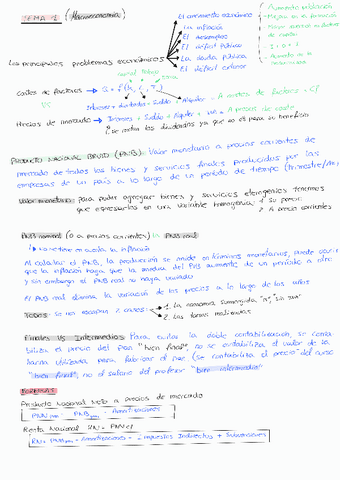 TEMA 1 (Macroeconomía)
El crecimiento económico
La inflación
El desempleo
El déficit público
La deuda pública
El déficit exterior
Los principales problemas económicos
Aumento población
Costes de factores → Q = f(K, L, T)
VS
Intereses + dividendos + Sueldo + Alquiler = A costes de factores = CF
Precios de mercado → Intereses + Sueldo + Alquiler +
Producto Nacional Bruto (PNB): Valor monetario a precios corrientes de
mercado de todos los bienes y servicios finales producidos por las
empresas de un país a lo largo de un período de tiempo (trimestre/año)
Valor monetario: para poder agregar bienes y servicios heterogéneos tenemos
que expresarlos en una variable homogénea, su precio.
A precios corrientes
PNB nominal (o a precios corrientes) VS PNB real
la inflación
Al calcular el PNB, la producción se mide en términos monetarios, puede ocurrir
que la inflación haga que la medida del PNB aumente de un período a otro
y sin embargo el PNB real no haya variado
El PNB real elimina la variación de los precios a lo largo de los años
Todos: Se nos escapan 2 casos
1. La economía sumergida "n", "sin iva"
2. Las tareas
Finales VS Intermedios: Para evitar la doble contabilización, se conta-
biliza el precio del pan "bien final", no se contabiliza el valor de la
harina utilizada para fabricar el pan. (Se contabiliza el precio del curso
"bien final", no el salario del profesor "bien intermedio")
FÓRMULAS
Producto Nacional Neto a precios de mercado
PNNpm = PNBpm - Amortizaciones
Renta Nacional RN = PNNcf
RN = PNBpm - Amortizaciones - Impuestos Indirectos + Subvenciones